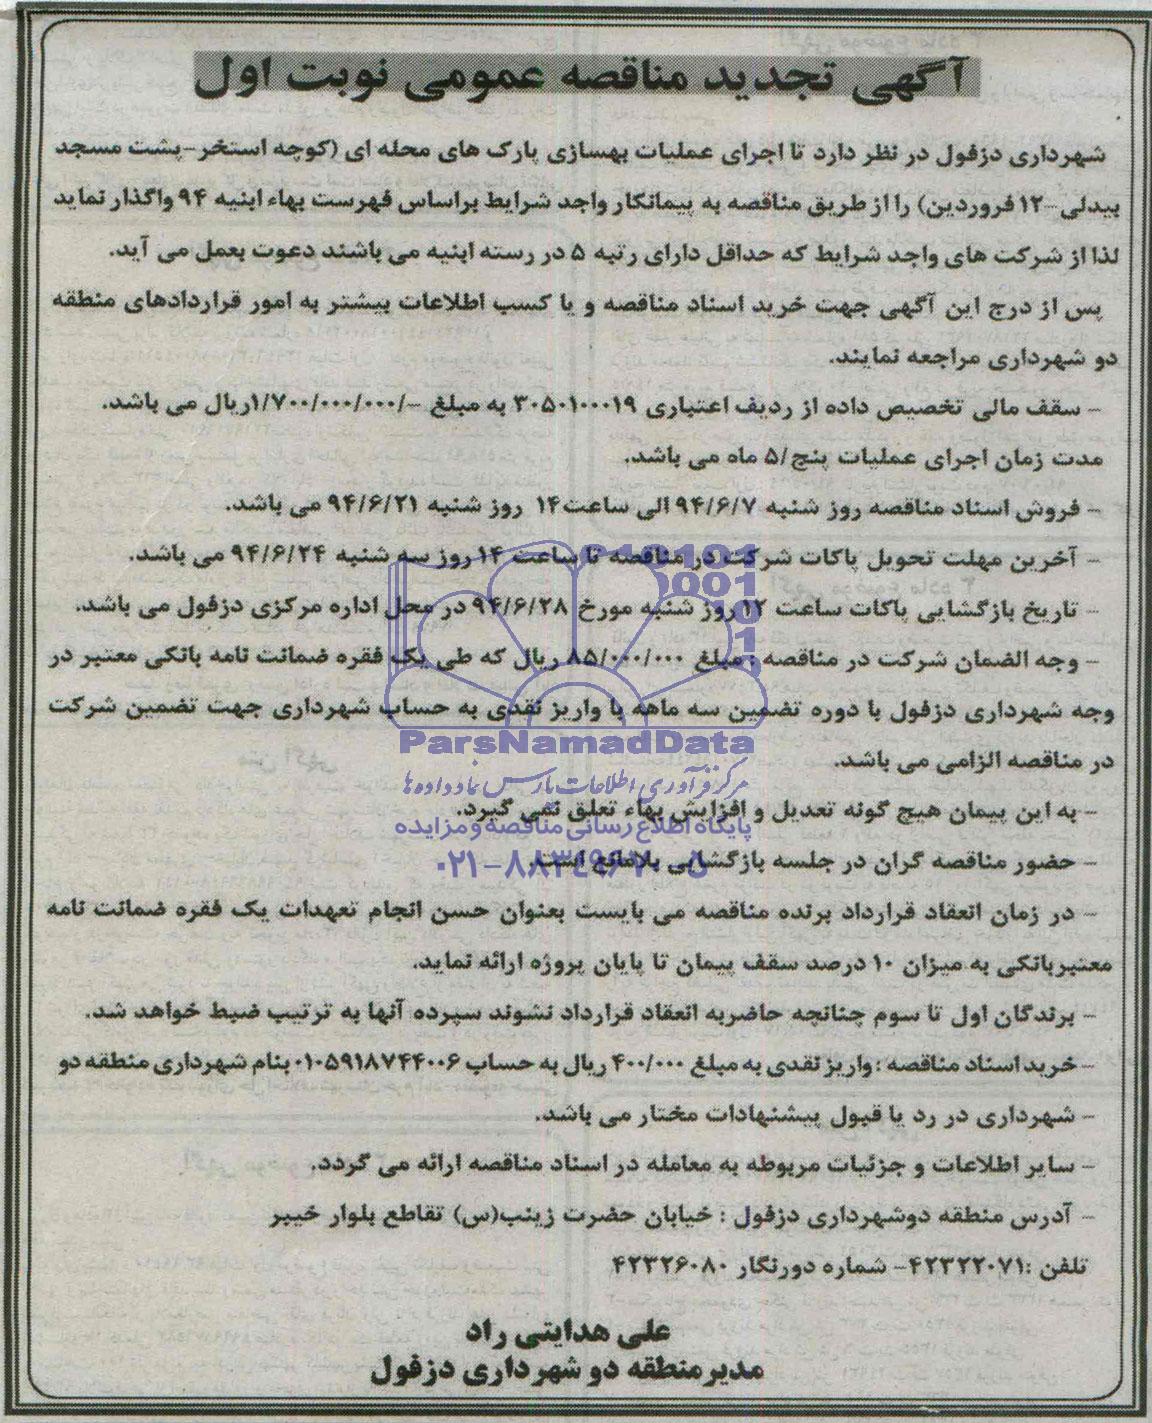 آگهی تجدید مناقصه عمومی نوبت اول
شهرداری دزفول در نظر دارد تا اجرای عملیات بهسازی پارک های محله ای (کوچه استخر-پشت مسجد
بیدلی-۱۲ فروردین) را از طریق مناقصه به پیمانکار واجد شرایط براساس فهرست بهاء ابنیه ۹۴ واگذار نماید
لذا از شرکت های واجد شرایط که حداقل دارای رتبه ۵ در رسته ابنیه می باشند دعوت بعمل می آید.
پس از درج این آگهی جهت خرید اسناد مناقصه و یا کسب اطلاعات بیشتر به امور قراردادهای منطقه
دو شهرداری مراجعه نمایند.
- سقف مالی تخصیص داده از ردیف اعتباری ۳۰۵۰۱۰۰۰۱۹ به مبلغ -/۱/۷۰۰/۰۰۰/۰۰۰ریال می باشد.
مدت زمان اجرای عملیات پنج/۵ ماه می باشد.
- فروش اسناد مناقصه روز شنبه ۹۴/۶/۷ الی ساعت۱۴ روز شنبه ۹۴/۶/۲۱ می باشد.
- آخرین مهلت تحویل پاکات شرکت در مناقصه تا ساعت ۱۴ روز سه شنبه ۹۴/۶/۲۴ می باشد.
- تاریخ بازگشایی پاکات ساعت ۱۲ روز شنبه مورخ ۹۴/۶/۲۸ در محل اداره مرکزی دزفول می باشد.
- وجه الضمان شرکت در مناقصه : مبلغ ۸۵/۰۰۰/۰۰۰ ریال که طی یک فقره ضمانت نامه بانکی معتبر در
وجه شهرداری دزفول با دوره تضمین سه ماهه یا واریز نقدی به حساب شهرداری جهت تضمین شرکت
ParsNamadData
در مناقصه الزامی می باشد.
مرکز فرآوری اطلاعات پارس نماد داده ها
- به این پیمان هیچ گونه تعدیل و افزایش بهاء تعلق نمی گیرد.
پایگاه اطلاع رسانی مناقصه و مزایده
- حضور مناقصه گران در جلسه بازگشایی بلامانع است.
۰۲۱-۸۸۳۴۹۶۷۰-۵
- در زمان انعقاد قرارداد برنده مناقصه می بایست بعنوان حسن انجام تعهدات یک فقره ضمانت نامه
معتبربانکی به میزان ۱۰ درصد سقف پیمان تا پایان پروژه ارائه نماید.
- برندگان اول تا سوم چنانچه حاضربه انعقاد قرارداد نشوند سپرده آنها به ترتیب ضبط خواهد شد.
- خرید اسناد مناقصه : واریز نقدی به مبلغ ۴۰۰/۰۰۰ ریال به حساب ۰۱۰۵۹۱۸۷۴۴۰۰۶ بنام شهرداری منطقه دو
- شهرداری در رد یا قبول پیشنهادات مختار می باشد.
- سایر اطلاعات و جزئیات مربوطه به معامله در اسناد مناقصه ارائه می گردد.
- آدرس منطقه دوشهرداری دزفول : خیابان حضرت زینب(س) تقاطع بلوار خیبر
تلفن :۴۲۳۲۲۰۷۱- شماره دورنگار ۴۲۳۲۶۰۸۰
علی هدایتی راد
مدیرمنطقه دو شهرداری دزفول